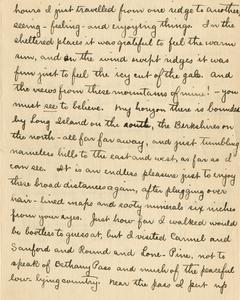 hours I just travelled from one ridge to another,
seeing - feeling - and enjoying things. In the
sheltered places it was grateful to feel the warm
sun, and on the wind swept ridges it was
fun just to feel the icy cut of the gale. and
the views from these mountains of mine! - you
must see to believe. My horizon there is bounded
by Long Island on the south, the Berkshires on
the north - all far far away, and just tumbling
nameless hills to the east and west, as far as I
can see. It is an endless pleasure just to enjoy
these broad distances again, after plugging over
hair-lined maps and sooty minerals six inches
from your eyes. Just how far I walked would
be bootless to guess at, but I visited Carmel and
Sanford and Round and Lone-Pine, not to
speak of Bethany Pass and much of the peaceful
low-lying country. Near the pass I put up